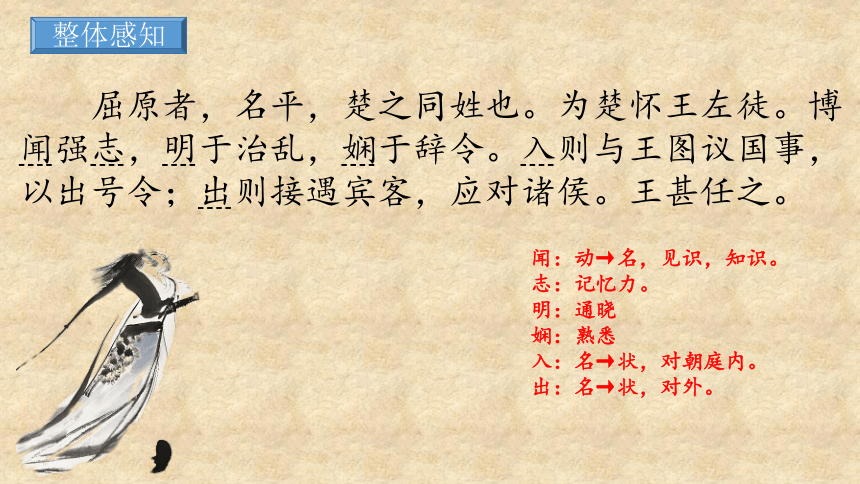 整体感知
屈原者，名平，楚之同姓也。为楚怀王左徒。博
闻强志，明于治乱，娴于辞令。入则与王图议国事，
以出号令；出则接遇宾客，应对诸侯。王甚任之。
闻：动→名，见识，知识。
志：记忆力。
明：通晓
娴：熟悉
入：名→状，对朝庭内。
出：名→状，对外。